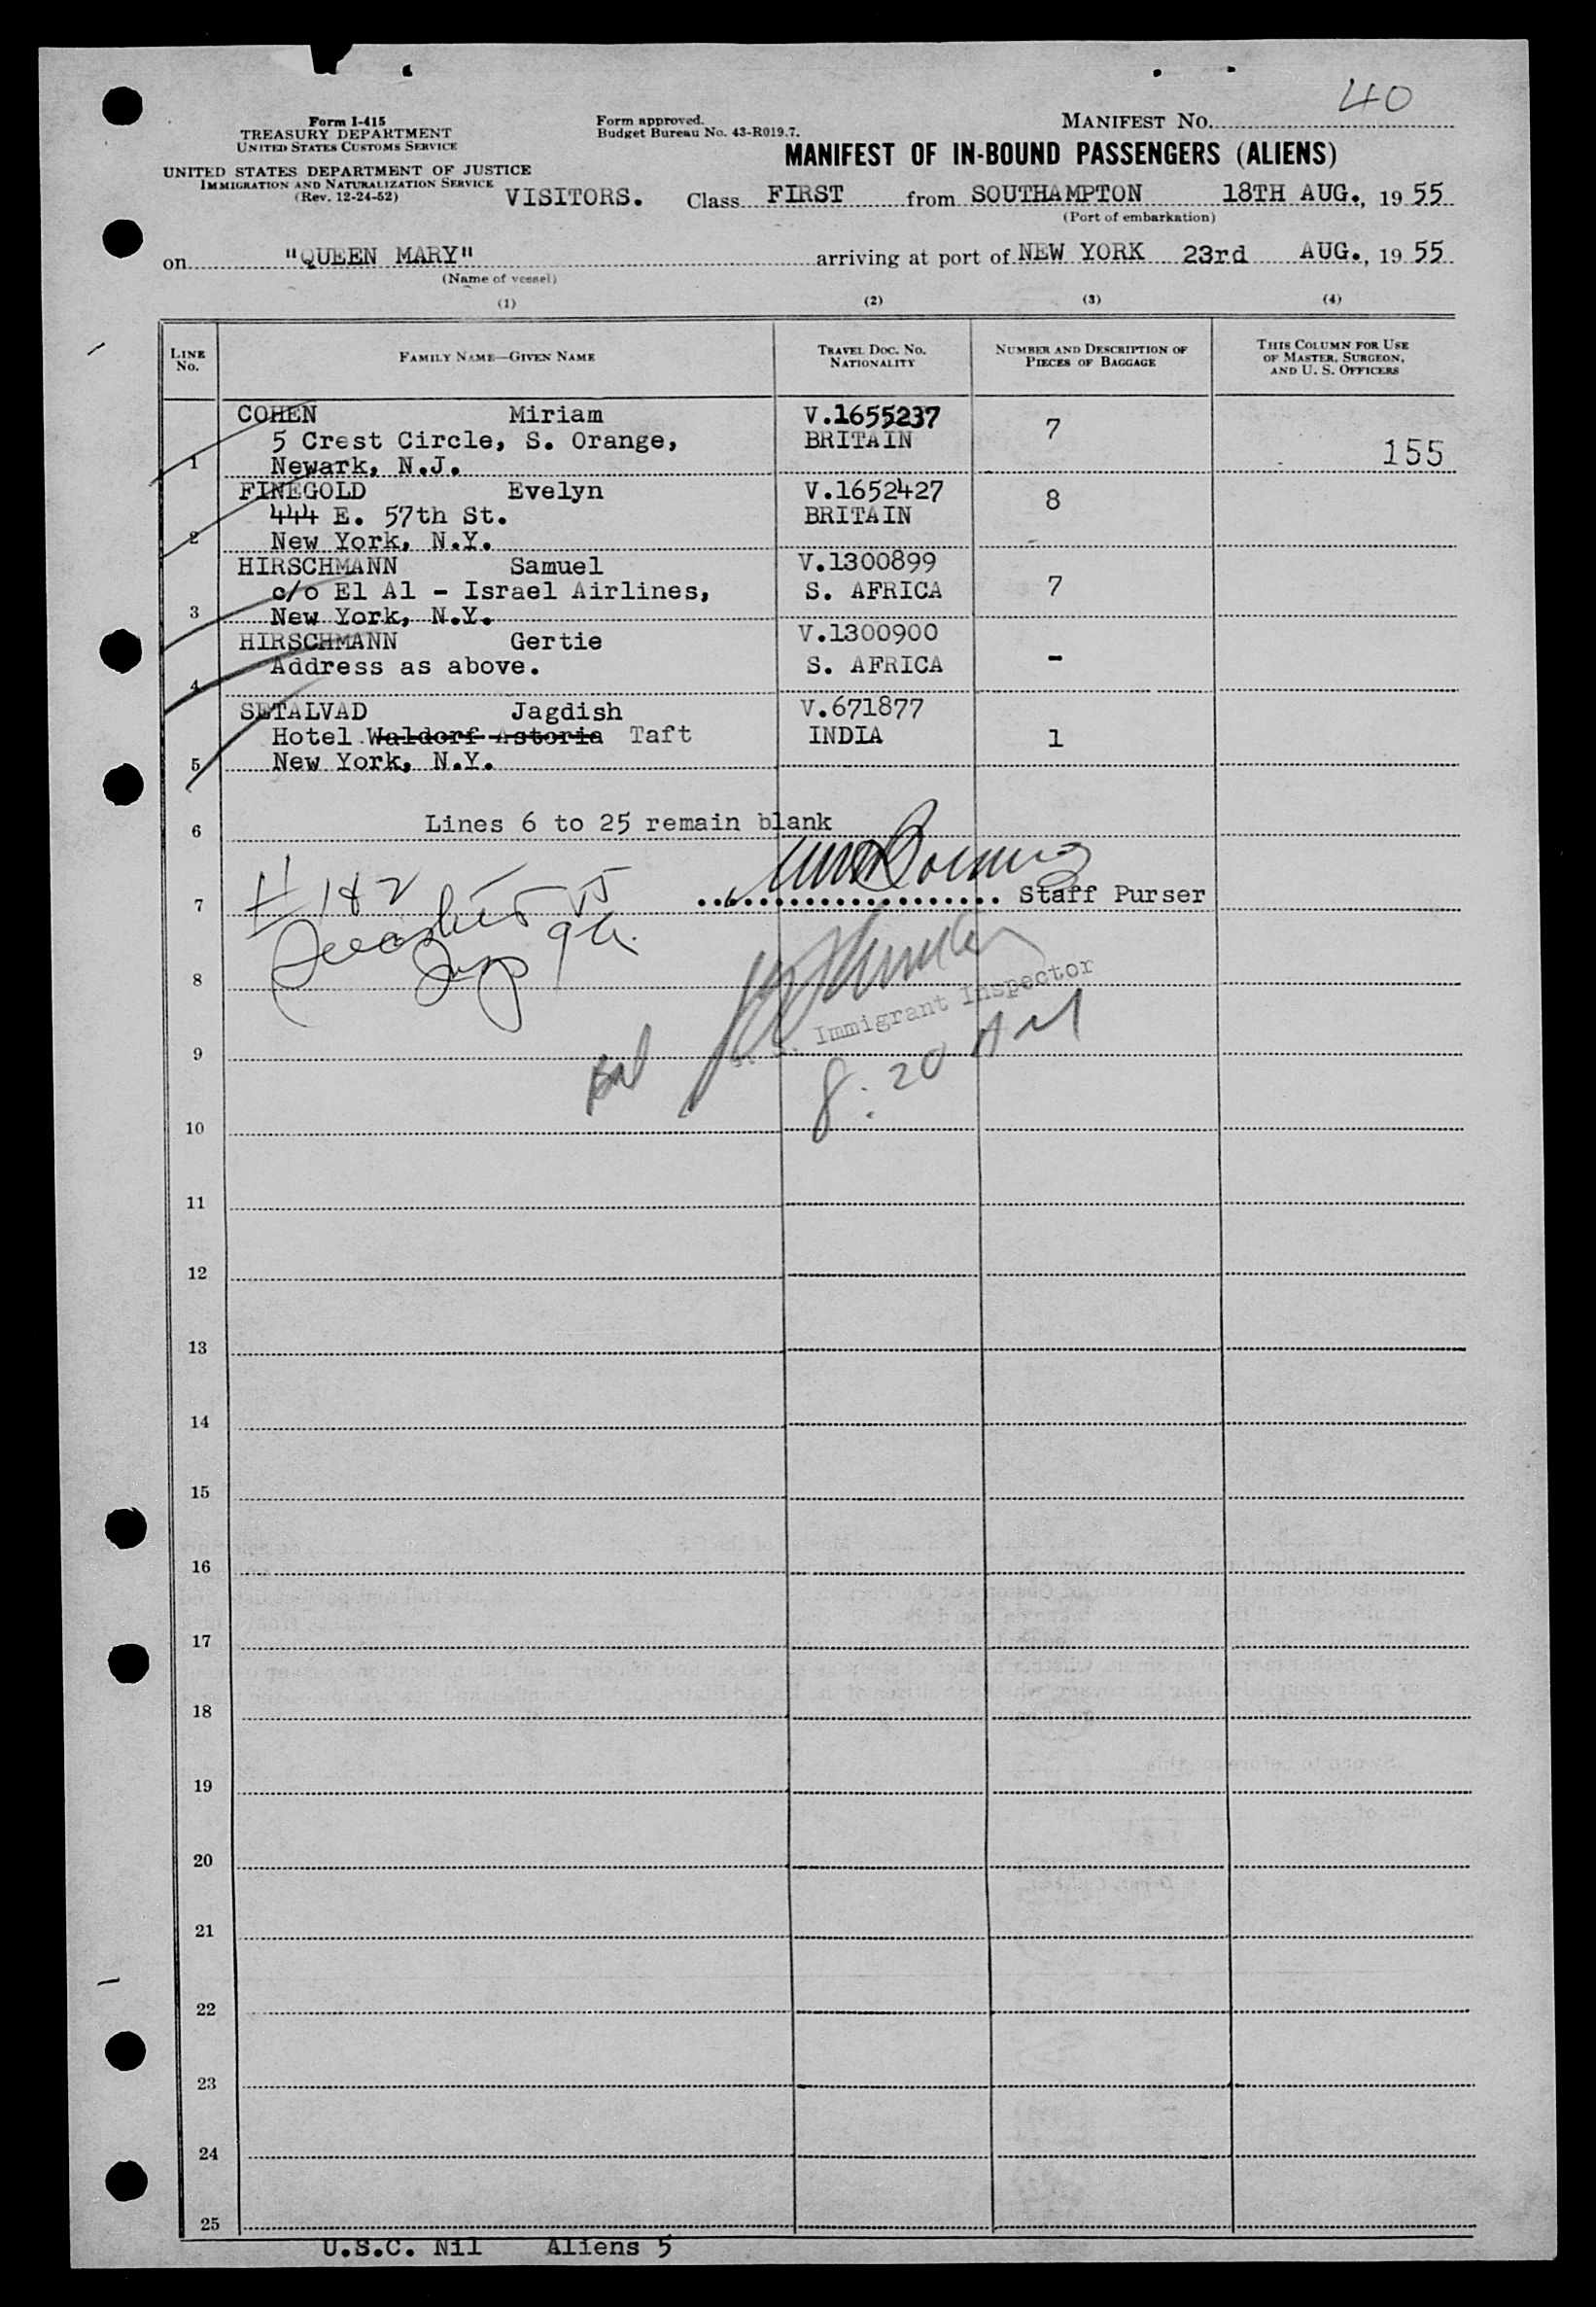 40
Form I-415
TREASURY DEPARTMENT
UNITED STATES CUSTOMS SERVICE
Form approved.
Budget Bureau No. 43-R019.7.
MANIFEST NO.
MANIFEST OF IN-BOUND PASSENGERS (ALIENS)
UNITED STATES DEPARTMENT OF JUSTICE
IMMIGRATION AND NATURALIZATION SERVICE
(Rev. 12-24-52)
VISITORS. Class FIRST from SOUTHAMPTON 18TH AUG., 1955
(Port of embarkation)
on "QUEEN MARY" arriving at port of NEW YORK 23rd AUG., 1955
(Name of vessel)
(1) (2) (3) (4)
LINE No. FAMILY NAME—GIVEN NAME TRAVEL DOC. NO. NATIONALITY NUMBER AND DESCRIPTION OF PIECES OF BAGGAGE THIS COLUMN FOR USE OF MASTER, SURGEON, AND U. S. OFFICERS
COHEN Miriam V.1655237
5 Crest Circle, S. Orange, BRITAIN 7
1 Newark, N.J. 155
FINEGOLD Evelyn V.1652427
444 E. 57th St. BRITAIN 8
2 New York, N.Y.
HIRSCHMANN Samuel V.1300899
c/o El Al - Israel Airlines, S. AFRICA 7
3 New York, N.Y.
HIRSCHMANN Gertie V.1300900
Address as above. S. AFRICA -
4
SETALVAD Jagdish V.671877
Hotel Waldorf Astoria Taft INDIA 1
5 New York, N.Y.
6 Lines 6 to 25 remain blank
7 # 1 & 2 Staff Purser
8
Immigrant Inspector
9
8:20 AM
10
11
12
13
14
15
16
17
18
19
20
21
22
23
24
25
U.S.C. Nil Aliens 5